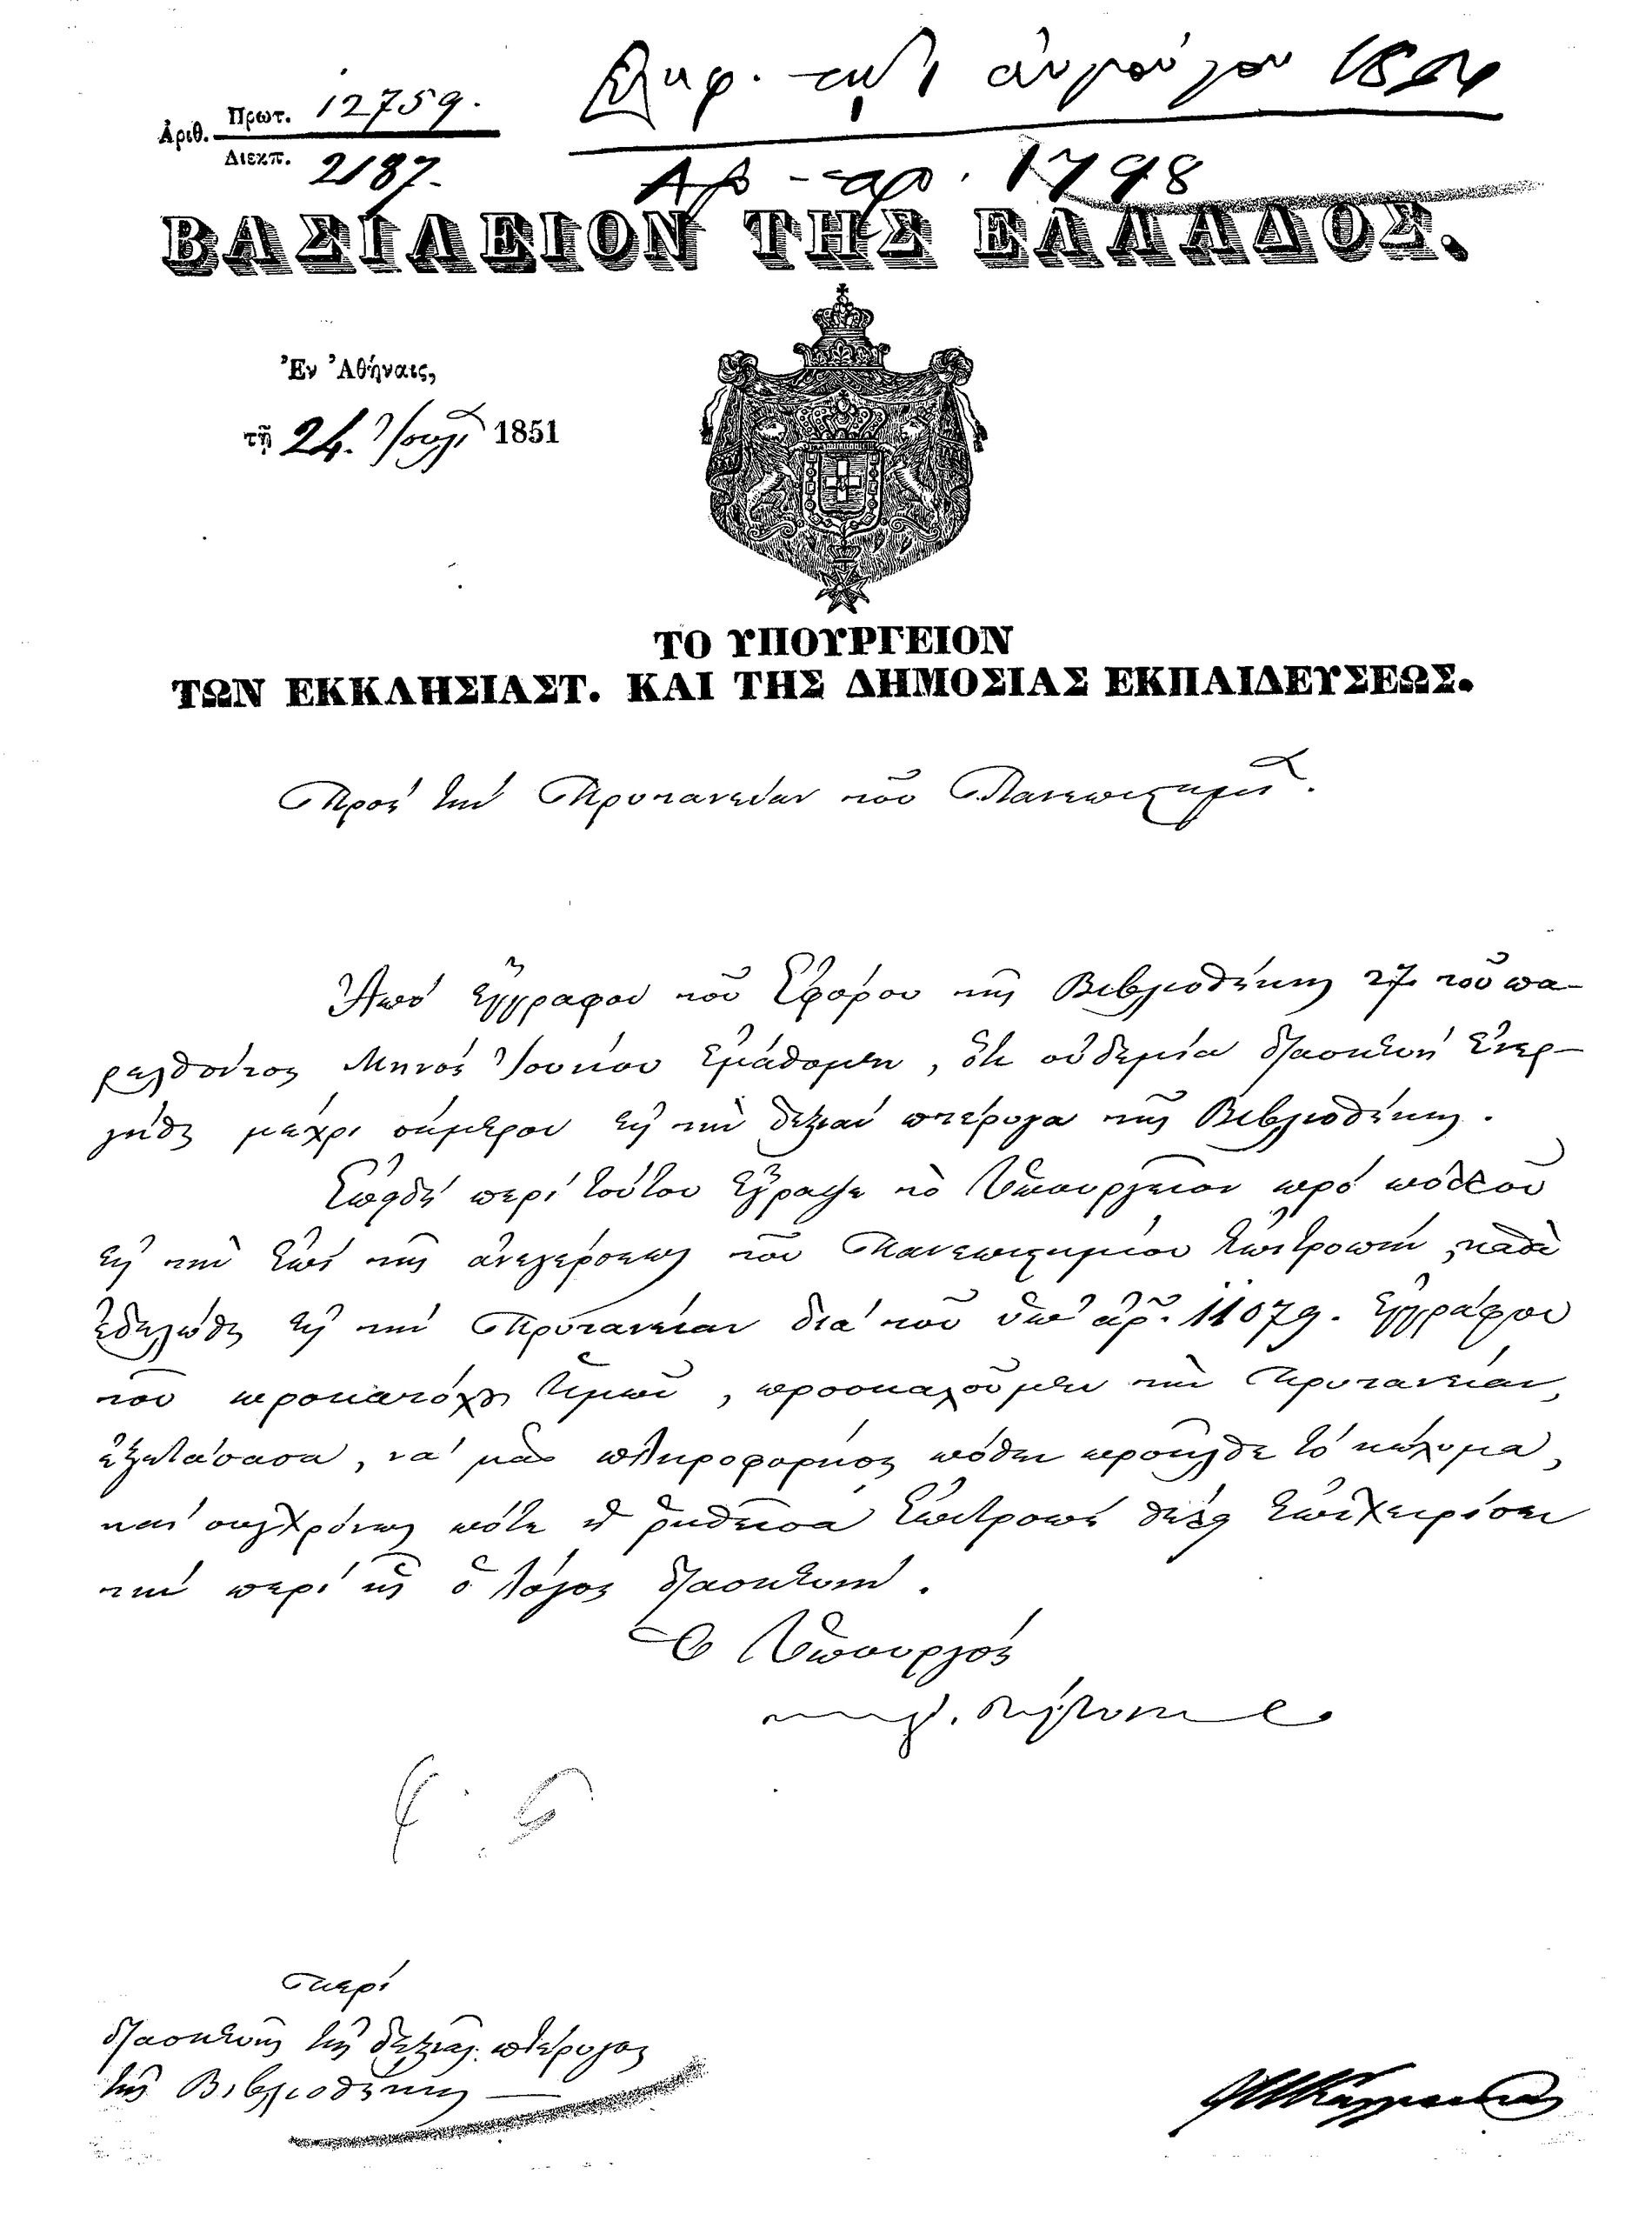 Ἀριθ. Πρωτ. 12759.
Διεκπ. 2187.
τὴν 1 αὐγούστου 1851
Ἀρ. πρ. 1798
ΒΑΣΙΛΕΙΟΝ ΤΗΣ ΕΛΛΑΔΟΣ.
Ἐν Ἀθήναις,
τῇ 24. Ἰουλί 1851
ΤΟ ΥΠΟΥΡΓΕΙΟΝ
ΤΩΝ ΕΚΚΛΗΣΙΑΣΤ. ΚΑΙ ΤΗΣ ΔΗΜΟΣΙΑΣ ΕΚΠΑΙΔΕΥΣΕΩΣ.
Πρὸς τὴν Πρυτανείαν τοῦ Πανεπιστημίου.
Ἀπὸ ἔγγραφον τοῦ Ἐφόρου τῆς Βιβλιοθήκης 27 τοῦ πα-
ρελθόντος Μηνὸς Ἰουνίου ἐμάθομεν, ὅτι οὐδεμία διασκευὴ ἐνερ-
γήθη μέχρι σήμερον εἰς τὴν δεξιὰν πτέρυγα τῆς Βιβλιοθήκης.
Ἐπειδὴ περὶ τούτου ἔγραψε τὸ Ὑπουργεῖον πρὸ
εἰς τὴν ἐπὶ τῆς ἀνεγέρσεως τοῦ Πανεπιστημίου Ἐπιτροπήν,
ἐδηλώθη εἰς τὴν Πρυτανείαν διὰ τοῦ ὑπ' ἀρ. 11079. ἐγγράφου
τοῦ προκατόχου ἡμῶν, προσκαλοῦμεν τὴν Πρυτανείαν,
ἐξετάσασα, νὰ μᾶς πληροφορήσῃ πόθεν προῆλθε τὸ κώλυμα,
καὶ συγχρόνως πότε ἡ ῥηθεῖσα Ἐπιτροπὴ θέλει ἐπιχειρήσει
τὴν περὶ ἧς ὁ λόγος διασκευήν.
Ὁ Ὑπουργὸς
Περὶ
διασκευῆς τῆς δεξιᾶς πτέρυγος
τῆς Βιβλιοθήκης